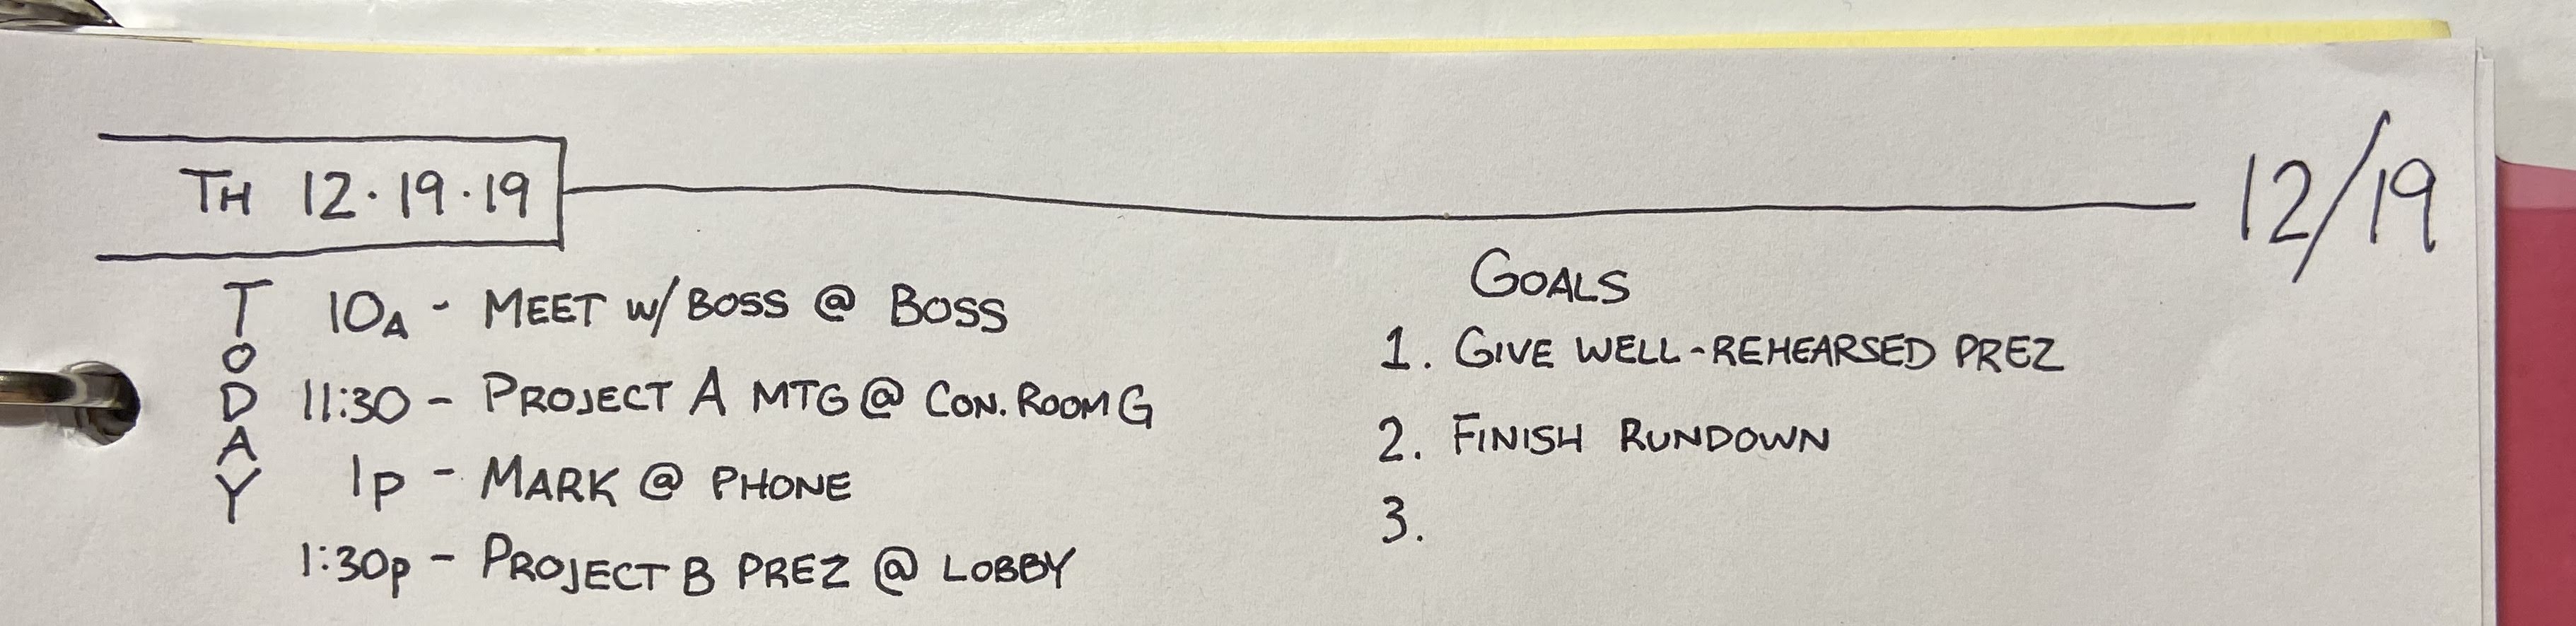 TH 12.19.19
12/19
TODAY
10A - MEET W/ BOSS @ BOSS
11:30 - PROJECT A MTG @ CON. ROOM G
1P - MARK @ PHONE
1:30P - PROJECT B PREZ @ LOBBY
GOALS
1. GIVE WELL-REHEARSED PREZ
2. FINISH RUNDOWN
3.